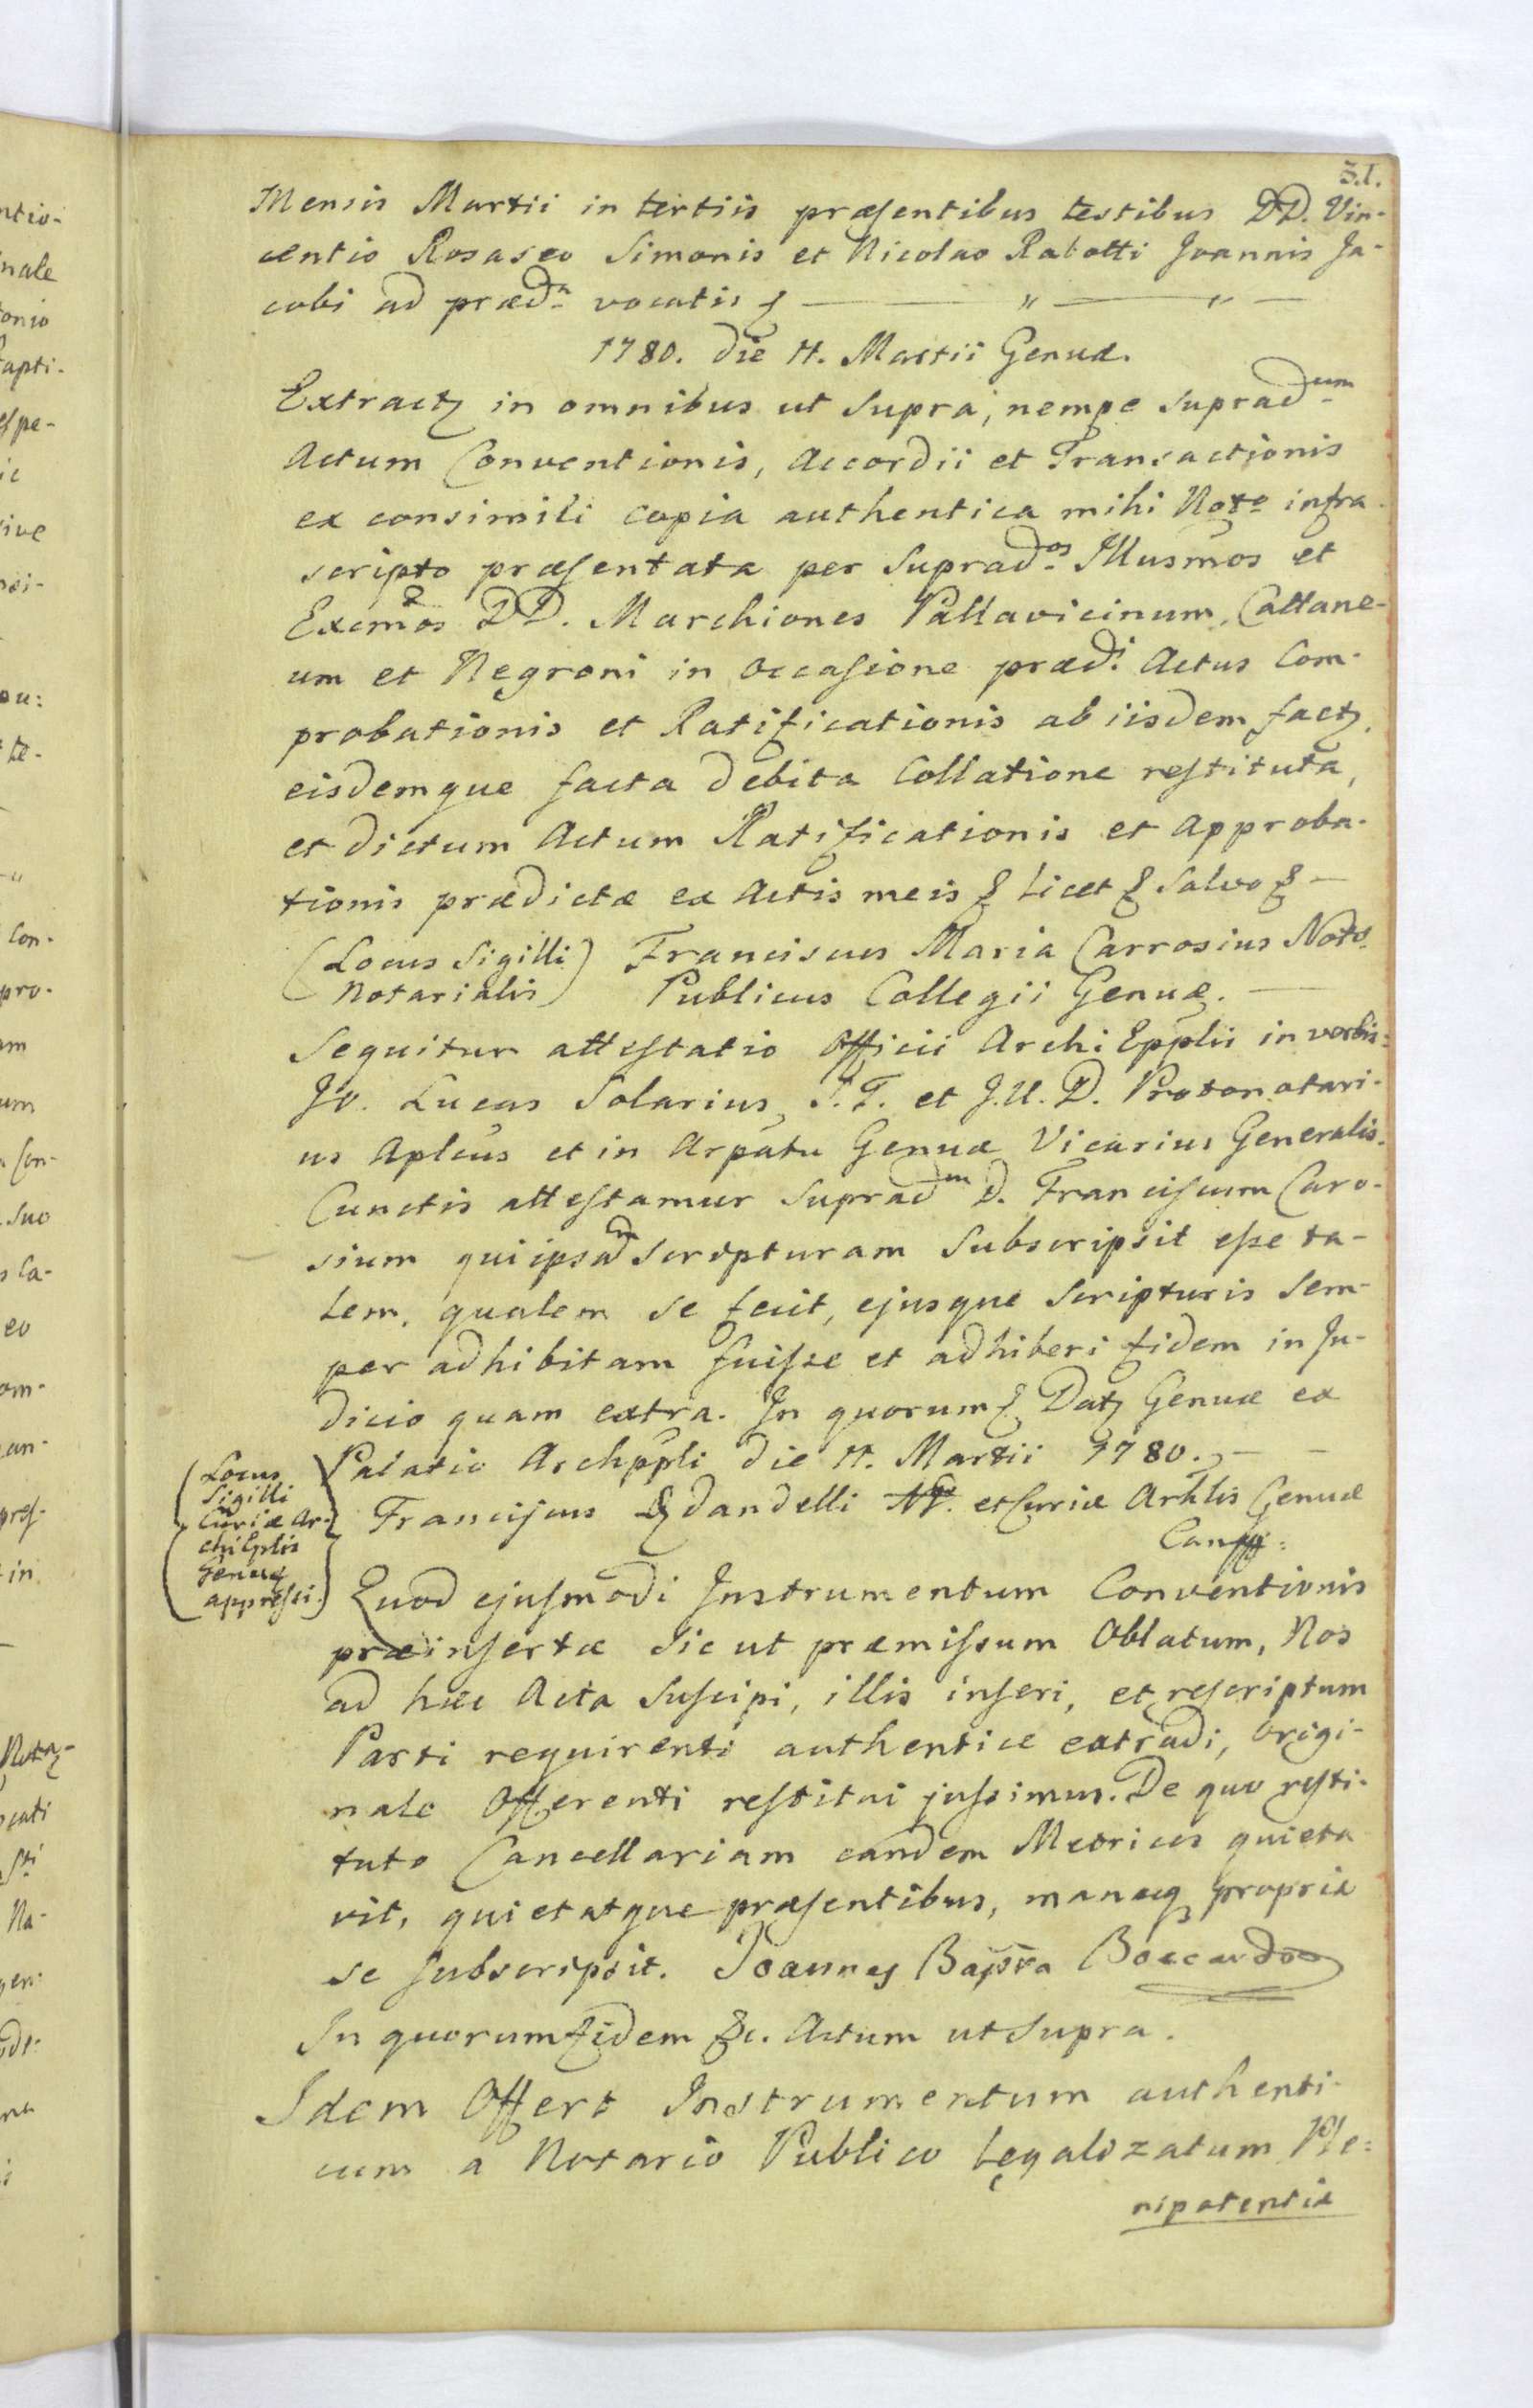 31.
Mensis Martii in tertiis præsentibus testibus DD. Vin-
centio Rosasco Simonis et Nicolao Rabotti Joannis Ja-
cobi ad præd. vocatis
1780. die 11. Martii Genuæ.
Extract in omnibus ut supra, nempe supradum
Actum Conventionis, Accordii et Transactionis
ex consimili copia authentica mihi Noto infra
scripto præsentata per suprados Illusmos et
Excmos DD. Marchiones Pallavicinum, Cattane-
um et Negroni in occasione prædi Actus Com-
probationis et Ratificationis ab iisdem fact,
eisdemque facta debita Collatione restituta,
et dictum Actum Ratificationis et Approba-
tionis prædictæ ex Actis meis & licet & salvo & —
(Locus Sigilli) Franciscus Maria Carrosius Nots
Notarialis) Publicus Collegii Genuæ. —
Sequitur attestatio Officii Archi Epplii in verbis:
Jo. Lucas Solarius, S. T. et J. U. D. Protonotari-
us Aplcus et in Arpatu Genuæ Vicarius Generalis.
Cunctis attestamur supradm D. Franciscum Caro-
sium qui ipsam scripturam subscripsit esse ta-
lem, qualem se fecit, ejusque scripturis sem-
per adhibitam fuisse et adhiberi fidem in Ju-
dicio quam extra. In quorum & Dat Genuæ ex
Palatio Archppli die 11. Martii 1780. — —
(Locus
Sigilli
Curiæ Ar-
chiEplis
Genuæ
appressi.)
Franciscus dandelli et Curiæ Arhlis Genuæ
Quod ejusmodi Instrumentum Conventionis
præinsertæ sic ut præmissum Oblatum, Nos
ad hæc Acta suscipi, illis inseri, et rescriptum
Parti requirenti authentice extradi, Origi-
nale Offerenti restitui jussimus. De quo resti-
tuto Cancellariam eandem Metrices quieta
vit, quietatque præsentibus, manuq propria
se subscripsit. Joannes Bapsta Boccardo
In quorum fidem &c. Actum ut supra.
Idem Offert Instrumentum authenti-
cum a Notario Publico Legalizatum Ple=
nipotentiæ